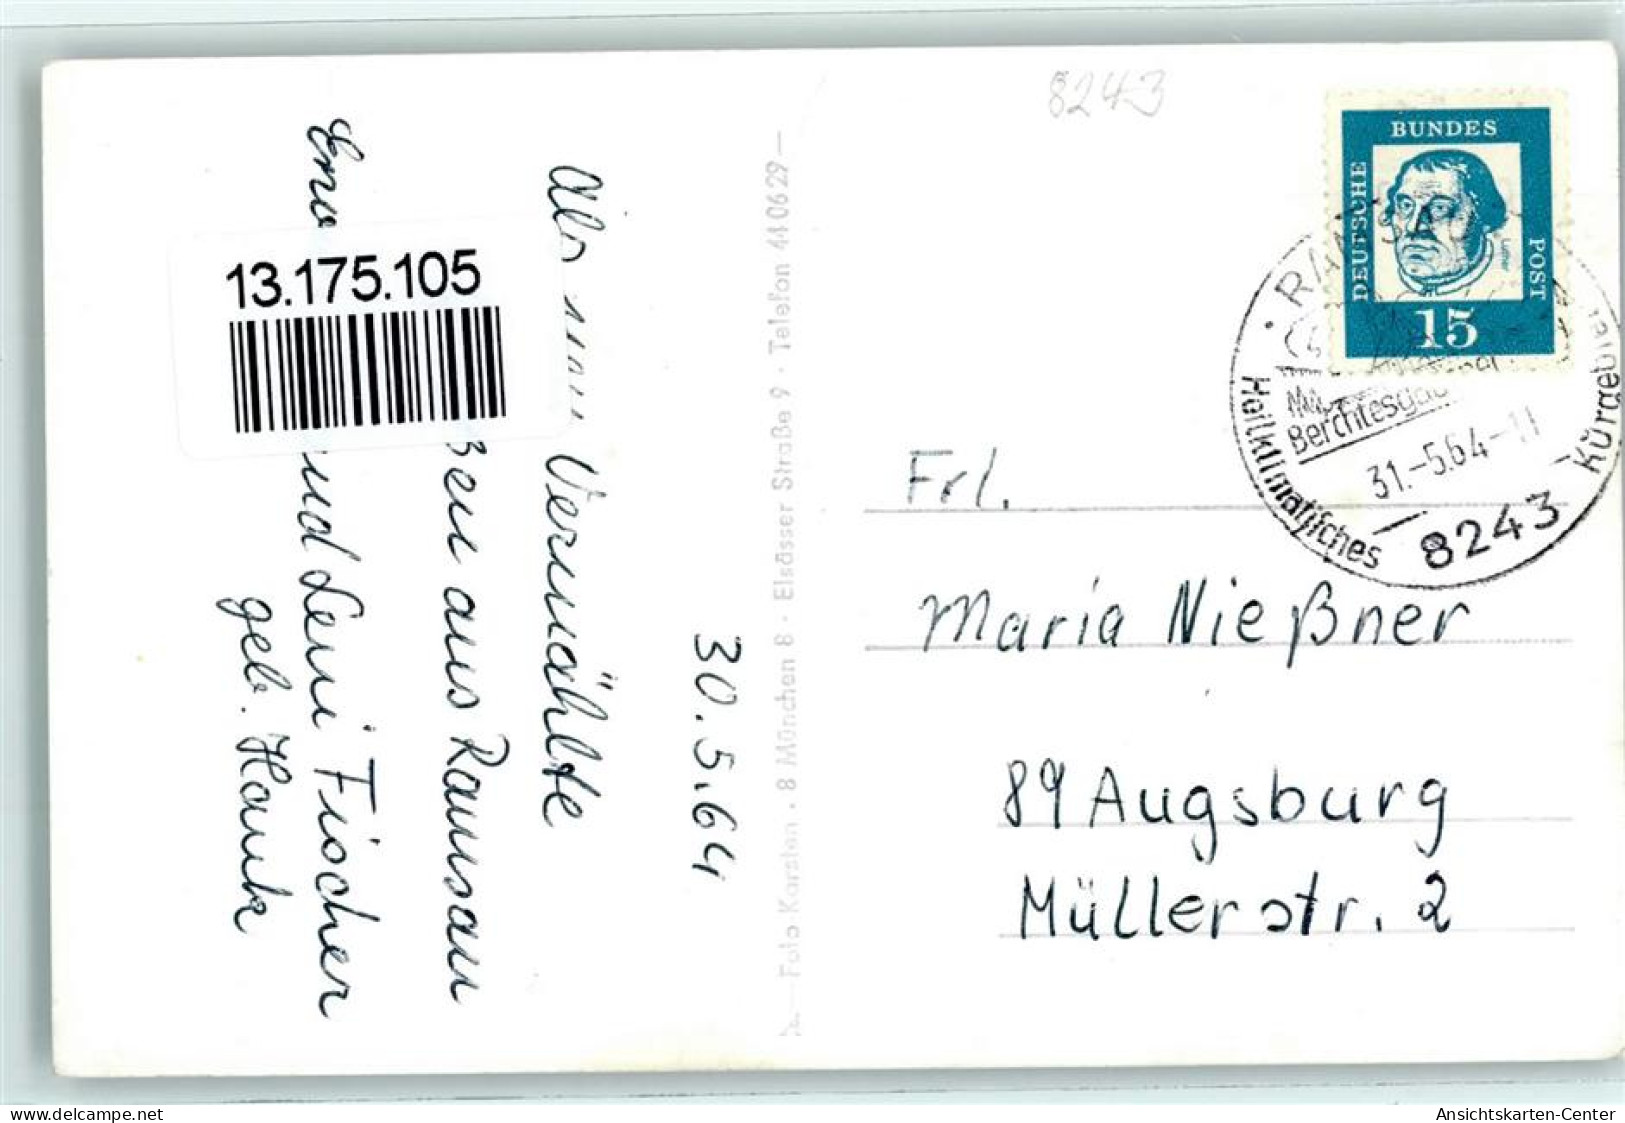 8243
BUNDES
DEUTSCHE
POST
Luther
15
RAMSAU
Berchtesgad
31.-5.64-11
8243
Heilklimatisches
Kurgebiet
13.175.105
30.5.64
Als Vermählte
aus Ramsau
und Leni Fischer
geb. Hauk
Foto-Karsten . 8 München 8 · Elsässer Straße 9 · Telefon 44 06 29
Frl.
Maria Nießner
89 Augsburg
Müllerstr. 2
www.delcampe.net
Ansichtskarten-Center